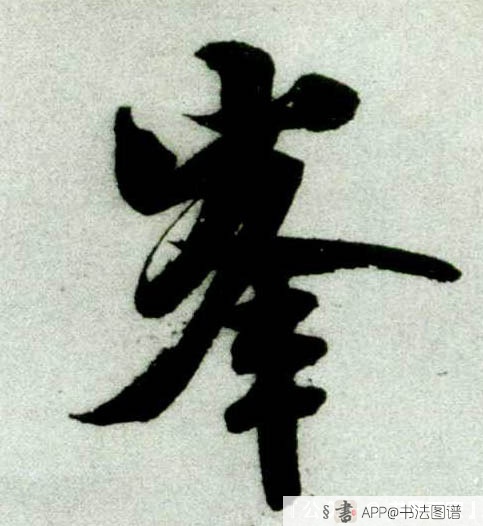 峯
公 § 書 APP@书法图谱